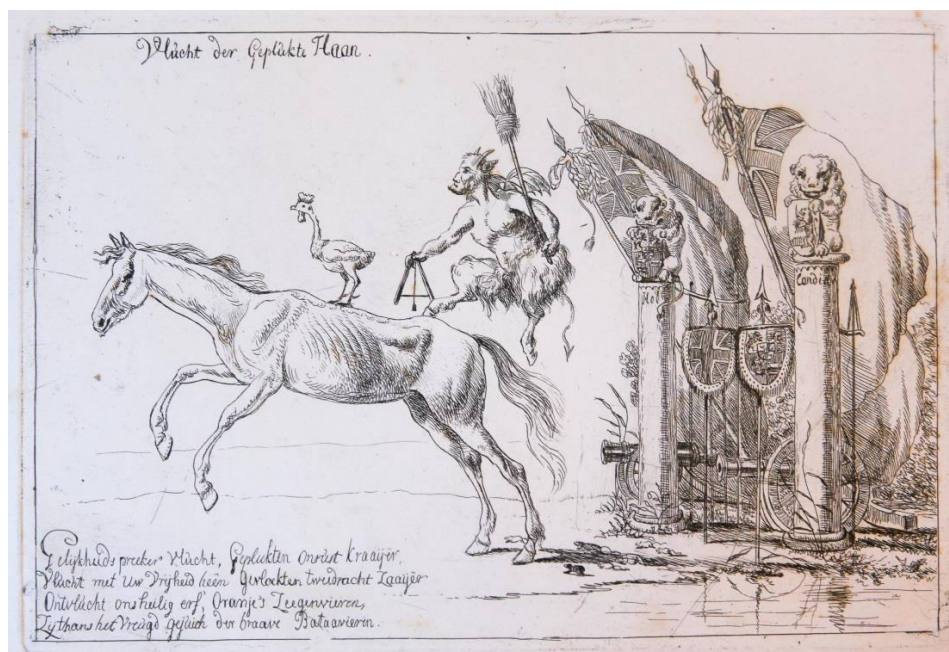 Vlucht der Geplukte Haan.
Hol
Candia
Gelijkheids preeker vlucht, Geplukten onrust kraaijer,
Vlucht met uw Vrijheid heen Gevloekten tweedracht Zaaijer
Ontvlucht ons heilig erf, Oranje's Zeegenvieren,
Zij thans het Vreugd gejuich der braave Bataavieren.